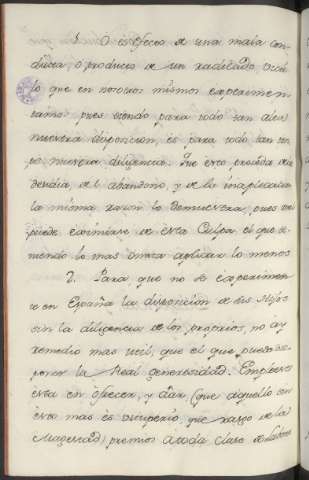 1. O es efecto de una mala con-
ducta, o producto de un radicado
lo que en nosotros mismos experimen-
tamos pues siendo para todo tan
nuestra disposicion, es para todo tan
nuestra diligencia. Que esto proceda de
desidia del abandono, y de la inaplicacion
la misma razon lo demuestra, pues no
puede eximirse de esta Culpa el que
lo mas aplicar lo menos
2. Para que no se experimen-
te en España la disposicion de sus Hijos
sin la diligencia de los propios, no ay
remedio mas util, que el que puede dis-
poner la Real generosidad. Empieze
esta en ofrecer, y dar (que aquello sin
esto mas es vituperio, que rasgo de la
Magestad) premios a toda clase de